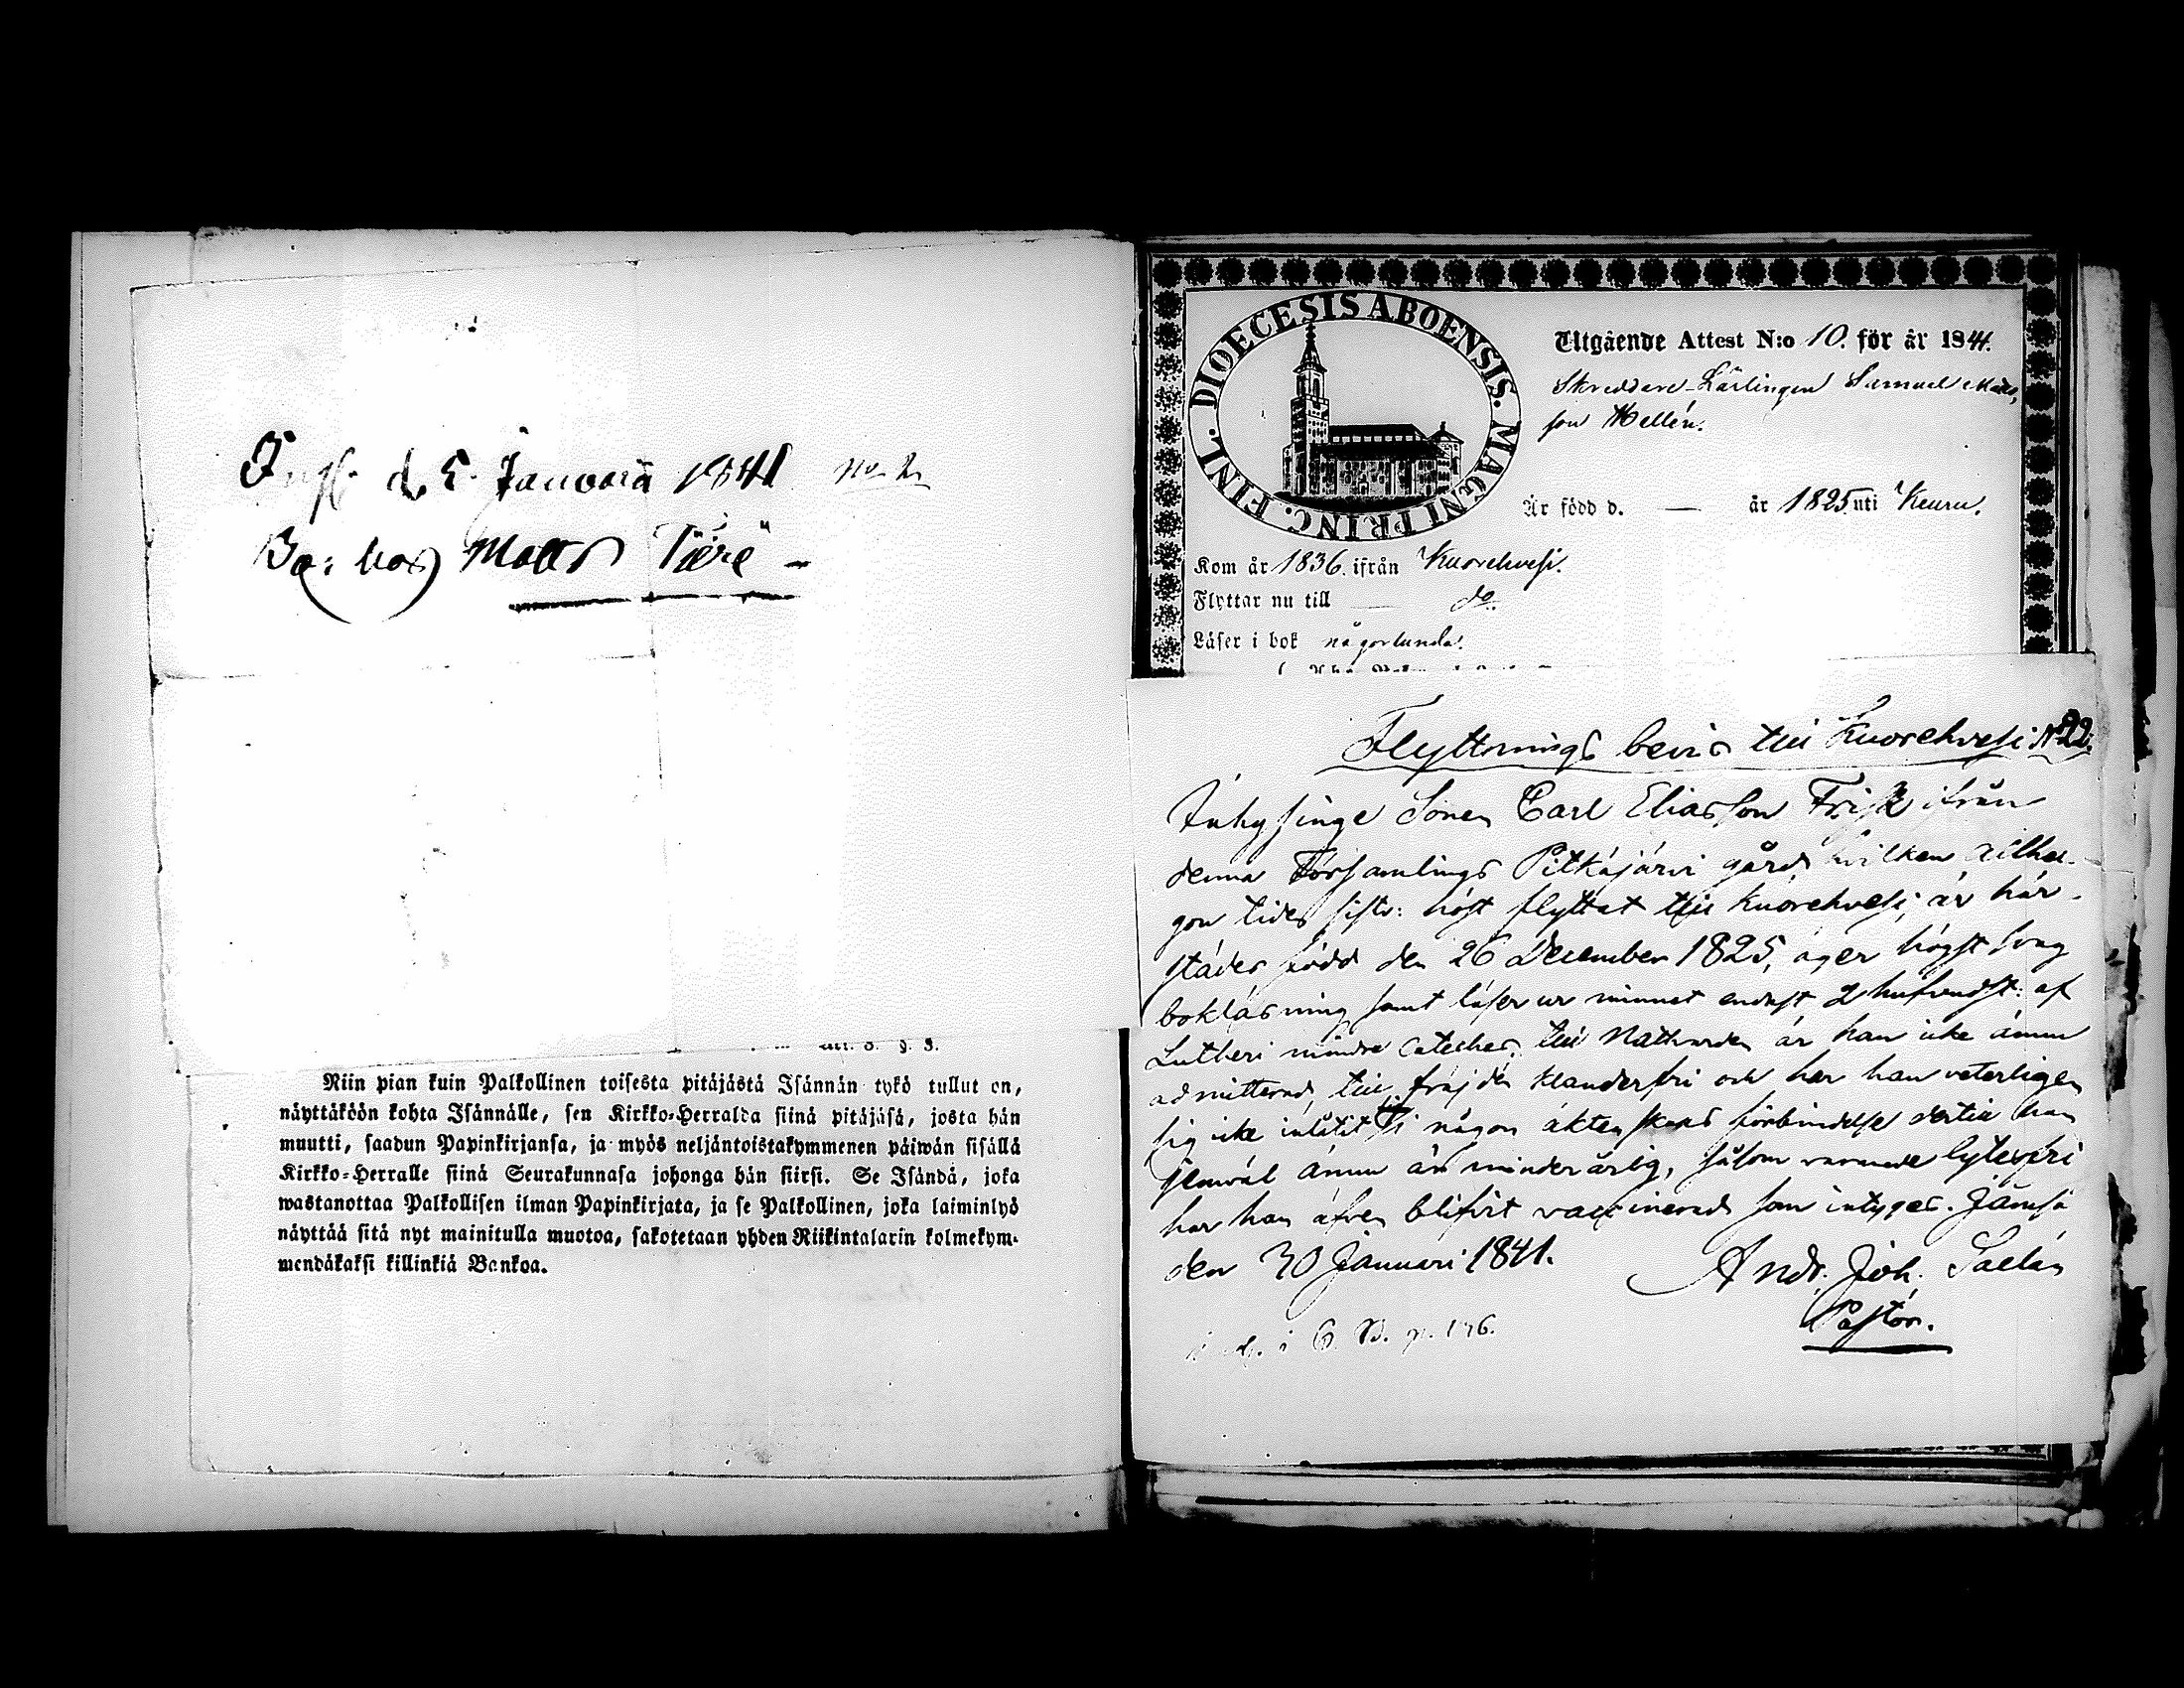 d. 5. Januarii 1841 No 2
Bo: hos Matts Tierë
Niin pian kuin Palkollinen toisesta pitäjästä Isännän tykö tullut on,
näyttäköön kohta Isännälle, sen Kirkko-Herralda siinä pitäjäsä, josta hän
muutti, saadun Papinkirjansa, ja myös neljäntoistakymmenen päiwän sisällä
Kirkko-Herralle siinä Seurakunnasa johonga hän siirsi. Se Isändä, joka
wastanottaa Palkollisen ilman Papinkirjata, ja se Palkollinen, joka laiminlyö
näyttää sitä nyt mainitulla muotoa, sakotetaan yhden Riikintalarin kolmekym-
mendäkaksi killinkiä Bankoa.
DIOECESIS ABOENSIS. MAGNI PRINC. FINL.
Utgående Attest N:o 10. för år 1841.
Skreddare-Lärlingen Samuel Matts-
son Hellén.
Är född d. — år 1825 uti Keuru.
Kom år 1836. ifrån Kuorehvesi.
Flyttar nu till — do.
Läser i bok någorlunda.
Flyttnings bevis till Kuorehvesi N 22.
Inhysinge Sonen Carl Eliasson Frisk ifrån
denna Församlings Pitkäjärvi gård, hvilken allhel-
gon tiden sistl: höst flyttat till Kuorehvesi, är här-
städes född den 26 December 1825, äger högst svag
bokläsning samt läser ur minnet endast 2 hufvudst: af
Lutheri mindre Cateches, till Nattvarden är han icke ännu
admitterad, till fräjden klanderfri och har han veterligen
sig icke inlåtit i någon äktenskaps förbindelse dertill han
jemväl ännu är minderårig, såsom varande lytesfri
har han äfven blifvit vaccinerad som intygas. Jämsä
den 30 Januari 1841. Andr. Joh. Saelan
Pastor.
i C. B. p. 176.